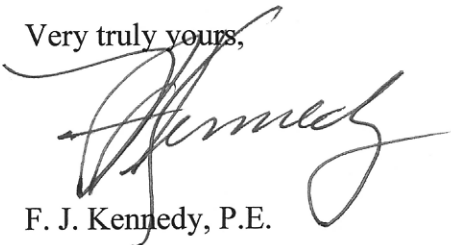 Very truly yours,
F. J. Kennedy
F. J. Kennedy, P.E.